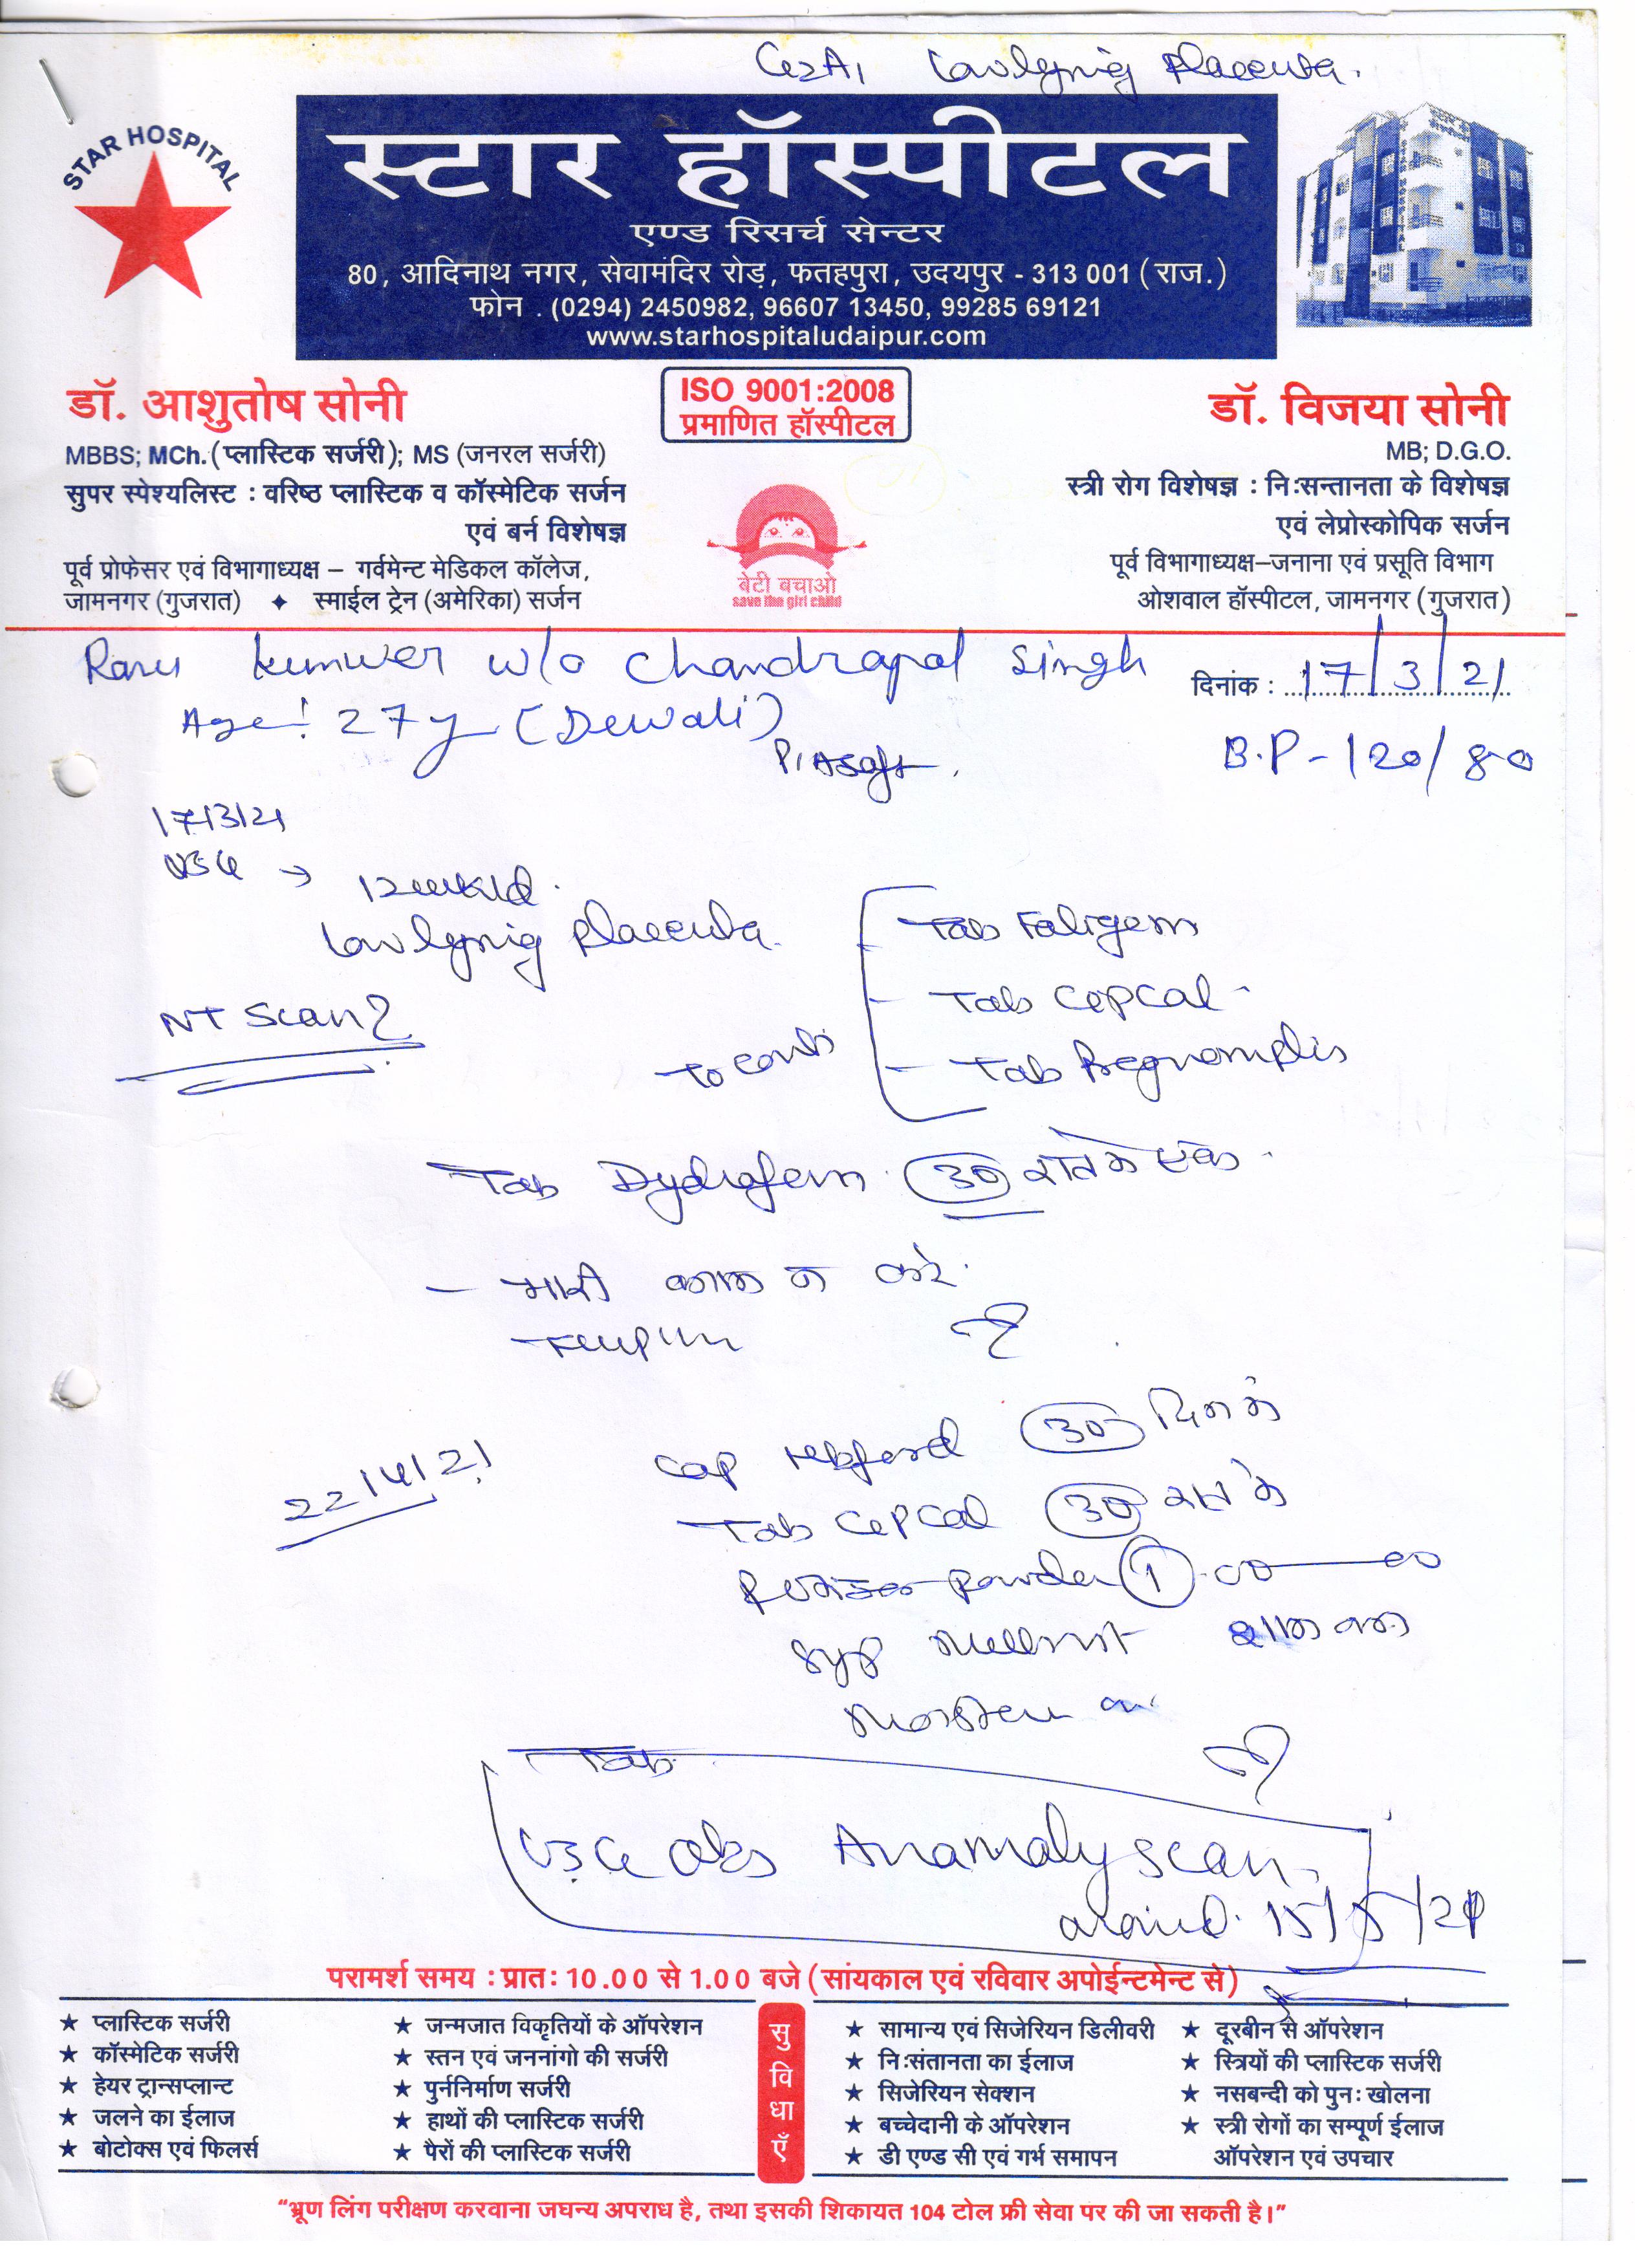 G2A1 Lowlying Placenta.
STAR HOSPITAL
स्टार हॉस्पीटल
एण्ड रिसर्च सेन्टर
80, आदिनाथ नगर, सेवामंदिर रोड़, फतहपुरा, उदयपुर - 313 001 (राज.)
फोन . (0294) 2450982, 96607 13450, 99285 69121
www.starhospitaludaipur.com
डॉ. आशुतोष सोनी
MBBS; MCh. (प्लास्टिक सर्जरी); MS (जनरल सर्जरी)
सुपर स्पेश्यलिस्ट : वरिष्ठ प्लास्टिक व कॉस्मेटिक सर्जन
एवं बर्न विशेषज्ञ
पूर्व प्रोफेसर एवं विभागाध्यक्ष – गर्वमेन्ट मेडिकल कॉलेज,
जामनगर (गुजरात) ✦ स्माईल ट्रेन (अमेरिका) सर्जन
ISO 9001:2008
प्रमाणित हॉस्पीटल
बेटी बचाओ
save the girl child
डॉ. विजया सोनी
MB; D.G.O.
स्त्री रोग विशेषज्ञ : निःसन्तानता के विशेषज्ञ
एवं लेप्रोस्कोपिक सर्जन
पूर्व विभागाध्यक्ष–जनाना एवं प्रसूति विभाग
ओशवाल हॉस्पीटल, जामनगर (गुजरात)
kunwer w/o Chandrapal Singh
दिनांक : 17/3/21
Age: 27y (Dewali)
P/A soft.
B.P - 120/80
17/3/21
USG →
Lowlying Placenta.
NT Scan?
To conti
Tab Foligem
- Tab Cepcal -
- Tab
Tab Dydrofem 30 रात को एक
- भारी काम न करे.
22/4/21
Cap 30 दिन में
Tab Cepcal 30 रात में
powder 1
Syp
Tab
USG Obs Anamaly scan
around 15/5/21
परामर्श समय : प्रातः 10.00 से 1.00 बजे (सांयकाल एवं रविवार अपोईन्टमेन्ट से)
★ प्लास्टिक सर्जरी
★ कॉस्मेटिक सर्जरी
★ हेयर ट्रान्सप्लान्ट
★ जलने का ईलाज
★ बोटोक्स एवं फिलर्स
★ जन्मजात विकृतियों के ऑपरेशन
★ स्तन एवं जननांगो की सर्जरी
★ पुर्ननिर्माण सर्जरी
★ हाथों की प्लास्टिक सर्जरी
★ पैरों की प्लास्टिक सर्जरी
सुविधाएँ
★ सामान्य एवं सिजेरियन डिलीवरी
★ निःसंतानता का ईलाज
★ सिजेरियन सेक्शन
★ बच्चेदानी के ऑपरेशन
★ डी एण्ड सी एवं गर्भ समापन
★ दूरबीन से ऑपरेशन
★ स्त्रियों की प्लास्टिक सर्जरी
★ नसबन्दी को पुनः खोलना
★ स्त्री रोगों का सम्पूर्ण ईलाज
ऑपरेशन एवं उपचार
“भ्रूण लिंग परीक्षण करवाना जघन्य अपराध है, तथा इसकी शिकायत 104 टोल फ्री सेवा पर की जा सकती है।”